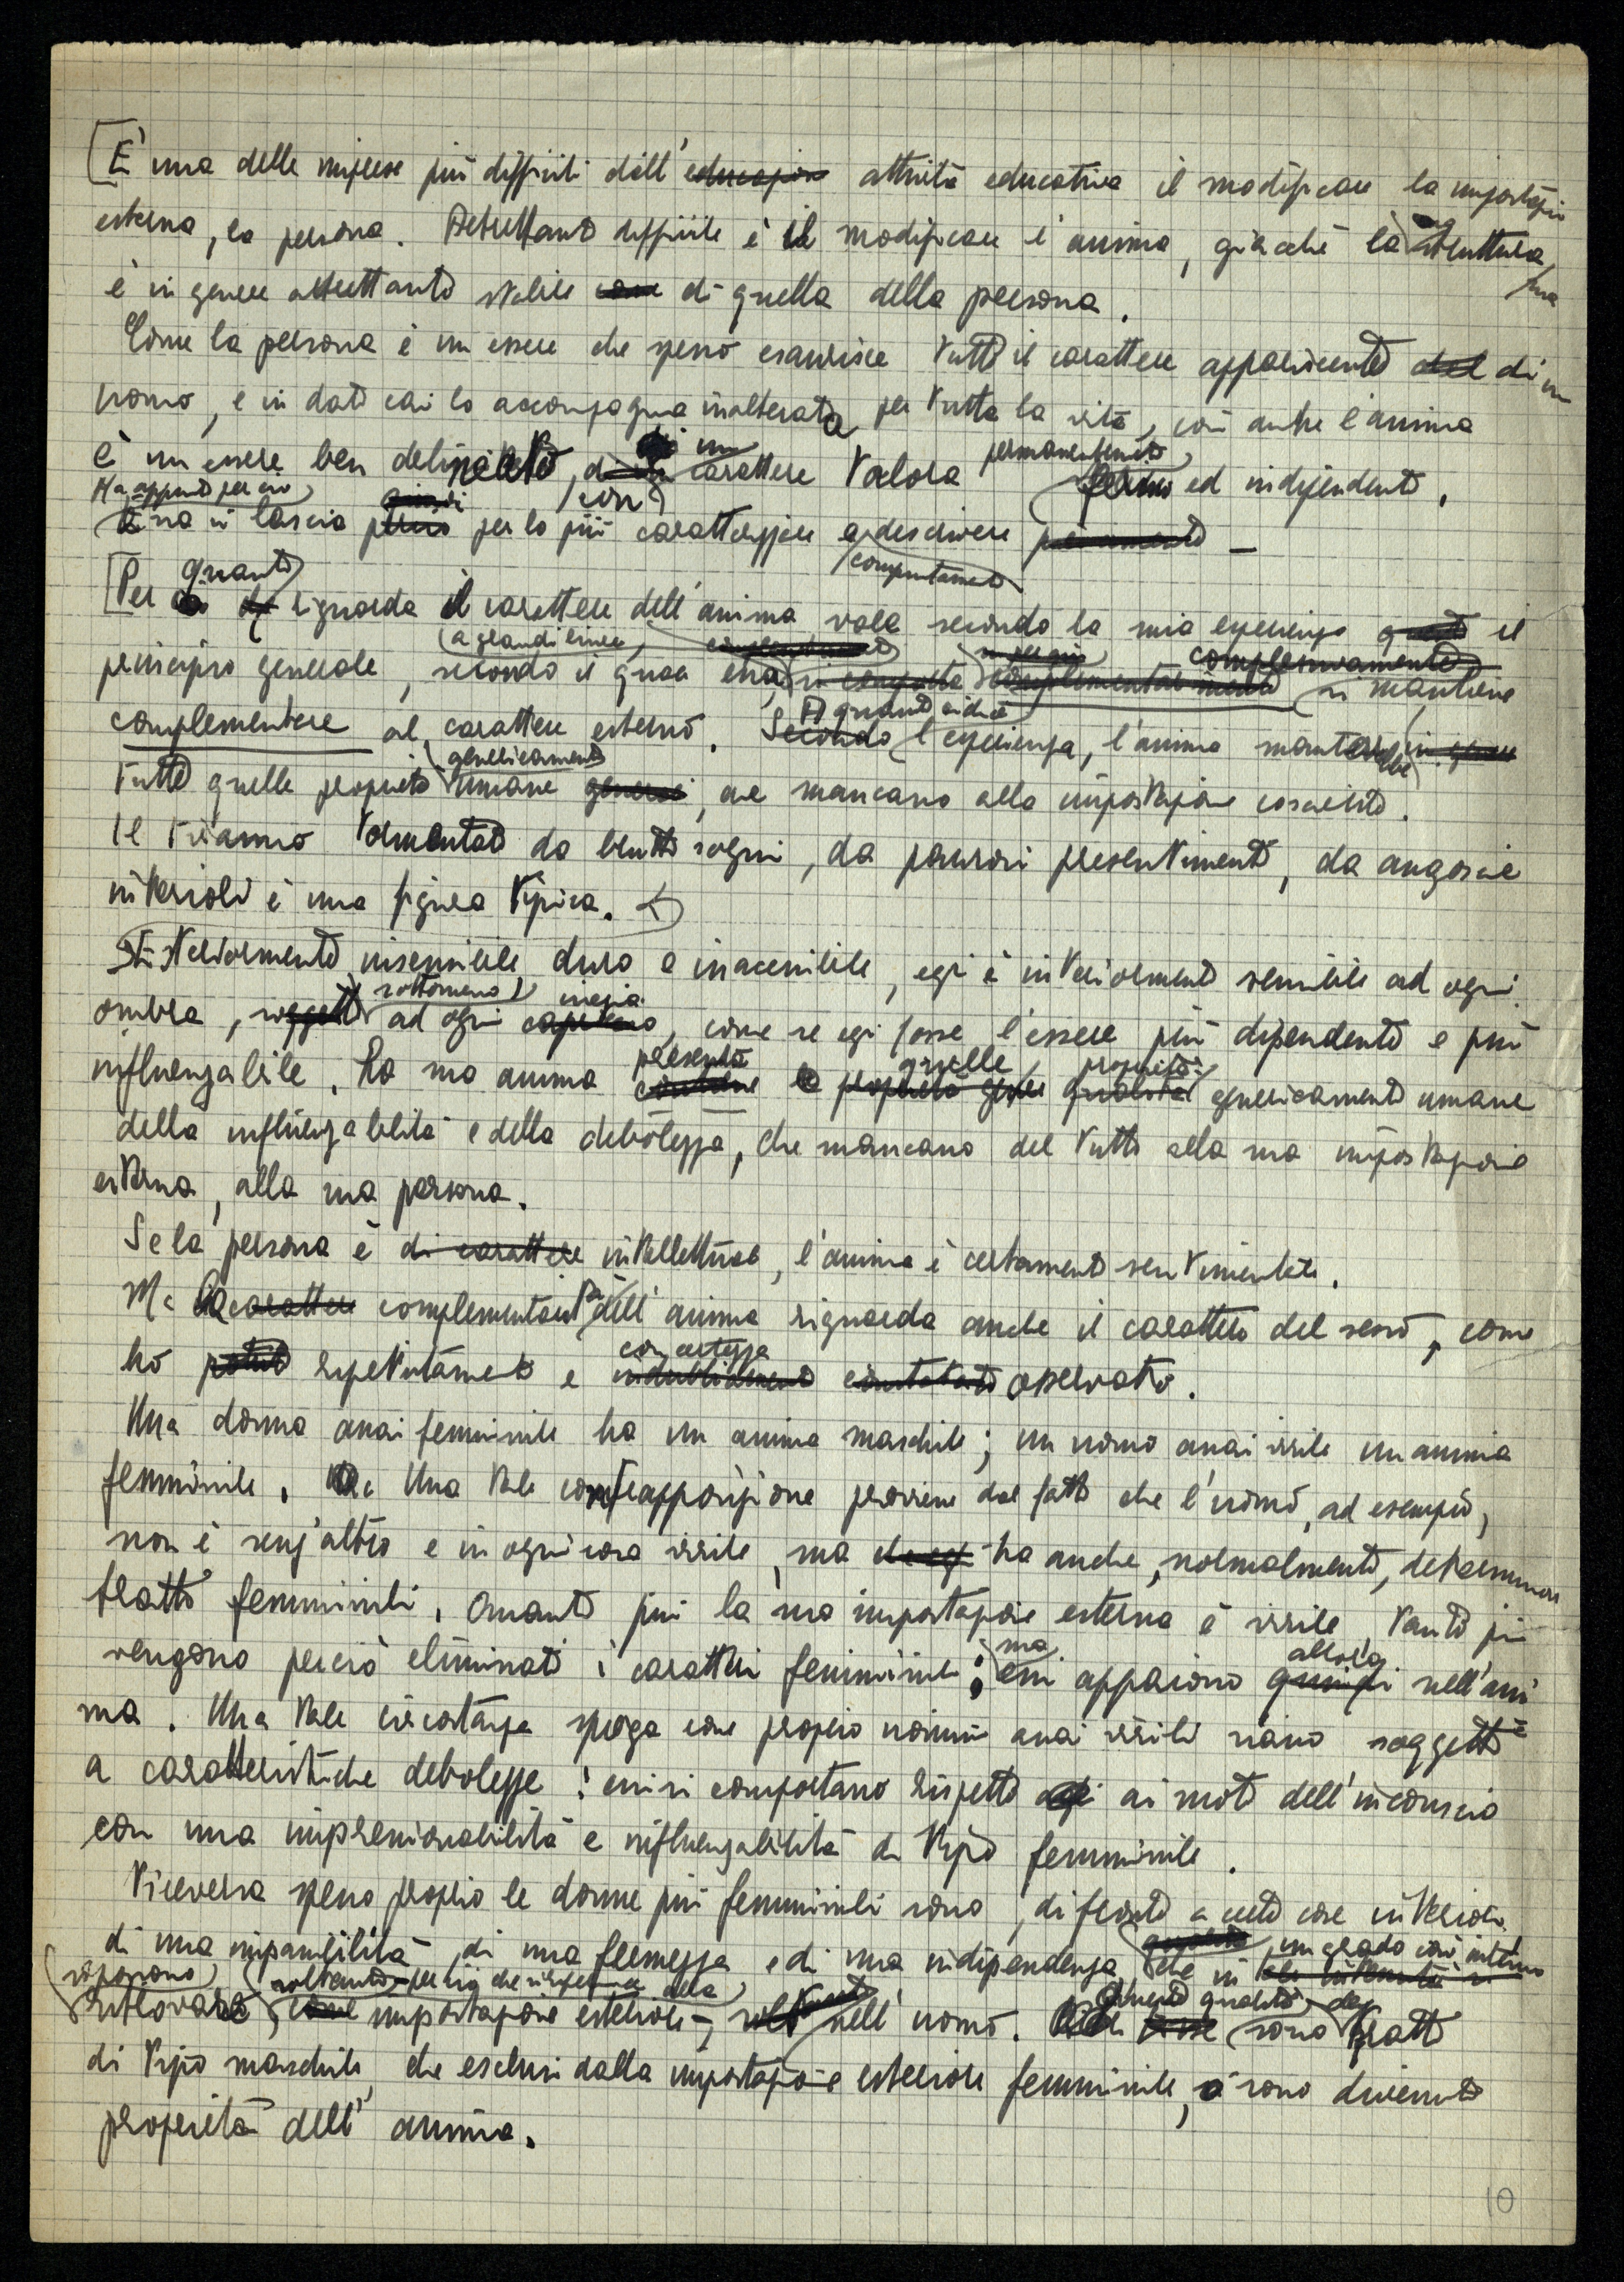 [E' una delle imprese più difficili dell' educazione attività educativa il modificare la impostazione
esterna, la persona. Altrettanto difficile è il modificare l'anima, giacché la struttura sua
è in genere altrettanto stabile come di quella della persona.
Come la persona è un essere che spesso esaurisce tutto il carattere appariscente del di un
uomo, e in dati casi lo accompagna inalterata per tutta la vita, così anche l'anima
è un essere ben delineato, di un carattere talora permanentemente fermo ed indipendente.
Ma appunto per ciò
Essa si lascia perciò quindi per lo più caratterizzare e descrivere compiutamente
[Per quanto riguarda il carattere dell'anima vale secondo la mia esperienza questo il
principio generale, a grandi linee, secondo il quale essa si mantiene complessivamente
complementare al carattere esterno. Secondo l'esperienza, l'anima in genere
tutte quelle proprietà genericamente umane generali, che mancano alla impostazione cosciente.
Il tiranno tormentato da brutti sogni, da paurosi presentimenti, da angoscie
interiori è una figura tipica.
Esteriormente insensibile duro e inaccessibile, egli è interiormente sensibile ad ogni
ombra, soggetto sottomesso ad ogni capriccio inezia, come se egli fosse l'essere più dipendente e più
influenzabile. La sua anima contiene presenta le proprietà quelle qualità proprietà genericamente umane
della influenzabilità e della debolezza, che mancano del tutto alla sua impostazione
esterna, alla sua persona.
Se la persona è di carattere intellettuale, l'anima è certamente sentimentale.
Ma carattere complementare dell'anima riguarda anche il carattere del sesso, come
ho potuto ripetutamente e indubbiamente con certezza constatato osservato.
Una donna assai femminile ha un anima maschile; un uomo assai virile un anima
femminile. Una tale contrapposizione proviene dal fatto che l'uomo, ad esempio,
non è senz'altro e in ogni cosa virile, ma ha anche, normalmente, determinati
tratti femminili. Quanto più la sua impostazione esterna è virile, tanto più
vengono perciò eliminati i caratteri femminili; ma essi appaiono quindi allora nell'ani
ma. Una tale circostanza spiega come proprio uomini assai virili siano soggetti
a caratteristiche debolezze: essi si comportano rispetto agli ai moti dell'inconscio
con una impressionabilità e influenzabilità di tipo femminile.
Viceversa spesso proprio le donne più femminili sono, di fronte a certe cose interiori,
di una impassibilità, di una fermezza e di una indipendenza che in un grado così intenso
si possono soltanto per ciò che
ritrovare, come impostazione esteriore, nell'uomo. queste qualità sono dei tratti
di tipo maschile che esclusi dalla impostazione esteriore femminile, sono divenute
proprietà dell' anima.
10